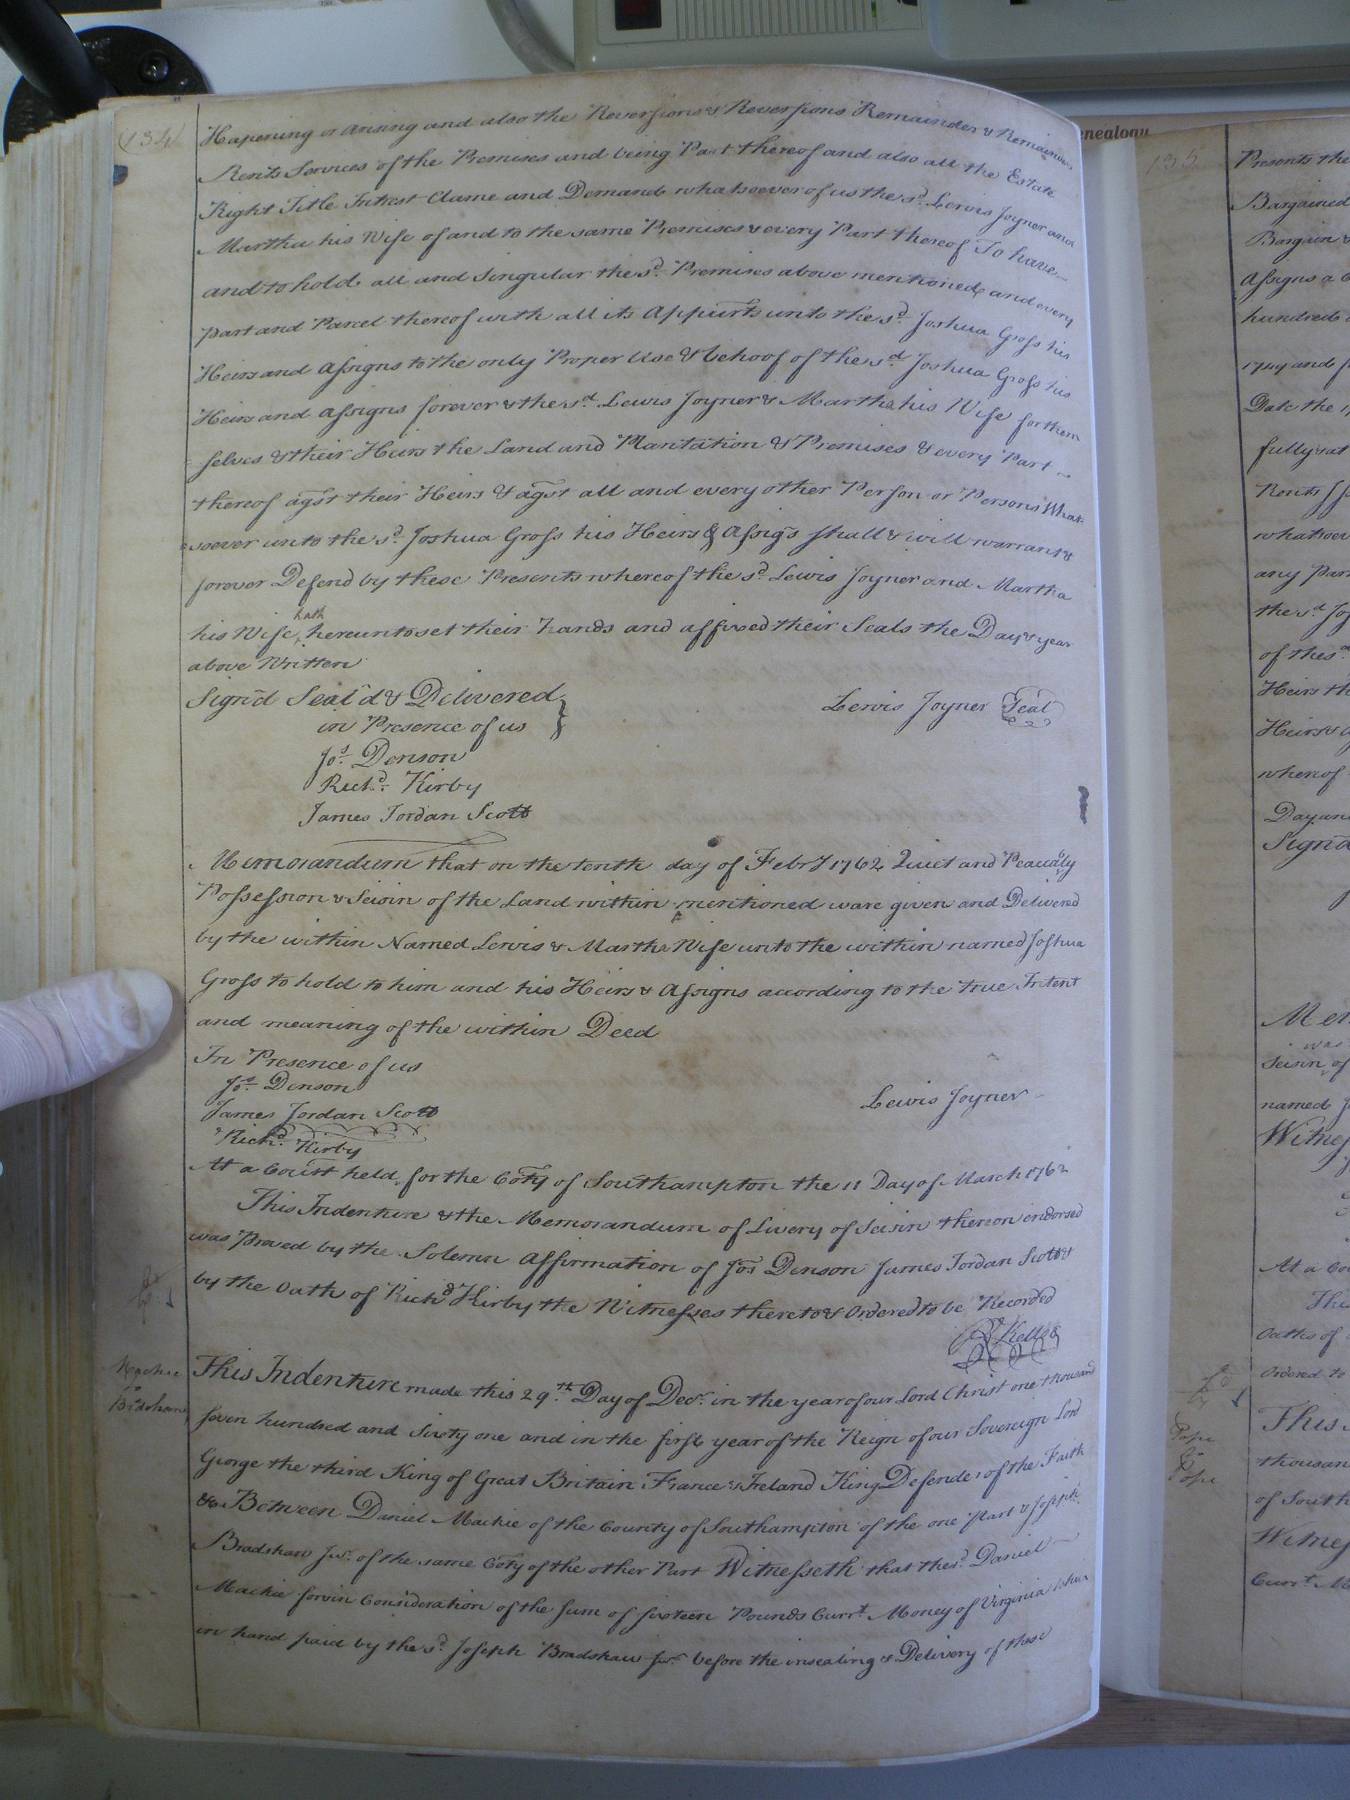 134
Hapening or Arising and also the Reversion & Reversions Remainder & Remainders
Rents Services of the Premises and being Part thereof and also all the Estate
Right Title Intrest Clame and Demande whatsoever of us the sd. Lewis Joyner and
Martha his Wife of and to the same Premises & every Part thereof To have
and to hold all and Singular the sd. Premises above mentioned and every
part and Parcel thereof with all its Appurts unto the sd. Joshua Gross his
Heirs and Assigns to the only Proper Use & behoof of the sd. Joshua Gross his
Heirs and Assigns forever & the sd. Lewis Joyner & Martha his Wife for them
selves & their Heirs the Land and Plantation & Premises & every Part
thereof agst their Heirs & agst all and every other Person or Persons What
soever unto the sd. Joshua Gross his Heirs & Assigs shall & will warrant &
forever Defend by these Presents whereof the sd. Lewis Joyner and Martha
hath
his Wife hereunto set their hands and affixed their Seals the Day & year
above Written
Sign'd Seal'd & Delivered
in Presence of us
Lewis Joyner Seal
Jos. Denson
Richd. Kirby
James Jordan Scott
Memorandum that on the tenth day of Febry 1762 Quiet and Peaceably
Possession & Seisin of the Land within mentioned ware given and Delivered
by the within Named Lewis & Martha Wife unto the within named Joshua
Gross to hold to him and his Heirs & Assigns according to the true Intent
and meaning of the within Deed
In Presence of us
Jos. Denson
James Jordan Scott
Lewis Joyner
Richd. Kirby
At a Court held for the Coty of Southampton the 11 Day of March 1762
This Indenture & the Memorandum of Livery of Seisin thereon endorsed
was Proved by the Solemn Affirmation of Jos Denson James Jordan Scott &
by the Oath of Richd Kirby the Witnesses thereto & Ordered to be Recorded
Kello
Mackie
to
Bradshaw
This Indenture made this 29th. Day of Decr. in the year of our Lord Christ one thousand
seven hundred and Sixty one and in the first year of the Reign of our Sovereign Lord
George the third King of Great Britain France & Ireland King Defender of the Faith
&c. Between Daniel Mackie of the County of Southampton of the one part & Joseph
Bradshaw Junr. of the same Coty of the other Part Witnesseth that the sd. Daniel
Mackie for & in Consideration of the sum of sixteen Pounds Currt. Money of Virginia
in hand paid by the sd. Joseph Bradshaw Junr. before the insealing & Delivery of these
enealogy
135
Presents the
Bargained
Bargain &
Assigns a
hundred
1744 and
Date the
fully & at
Rents
whatsoev
any Par
the sd. Joy
of the sd.
Heirs th
Heirs &
whereof
Day and
Sign'd
Mem
was
Seisin of
named J
Witnes
At a Co
This
Oaths of
Ordered to
Pope
to
Pope
This
thousan
of South
Witnes
Currt. Mo